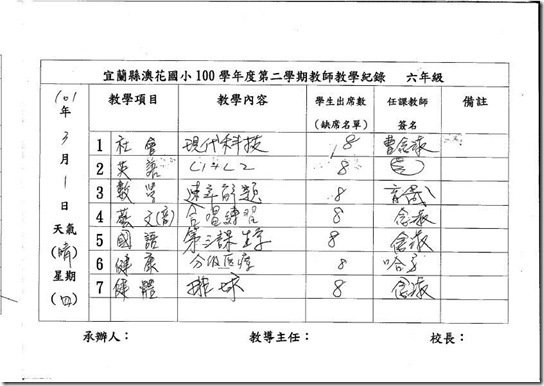 宜蘭縣澳花國小100學年度第二學期教師教學紀錄 六年級
101年3月1日天氣(晴)星期(四)
教學項目 教學內容 學生出席數(缺席名單) 任課教師簽名 備註
1 社會 現代科技 8
2 英語 L1+L2 8
3 數學 速率解題 8
4 藝文(音) 合唱練習 8
5 國語 第三課生字 8
6 健康 分級醫療 8
7 健體 排球 8
承辦人： 教導主任： 校長：